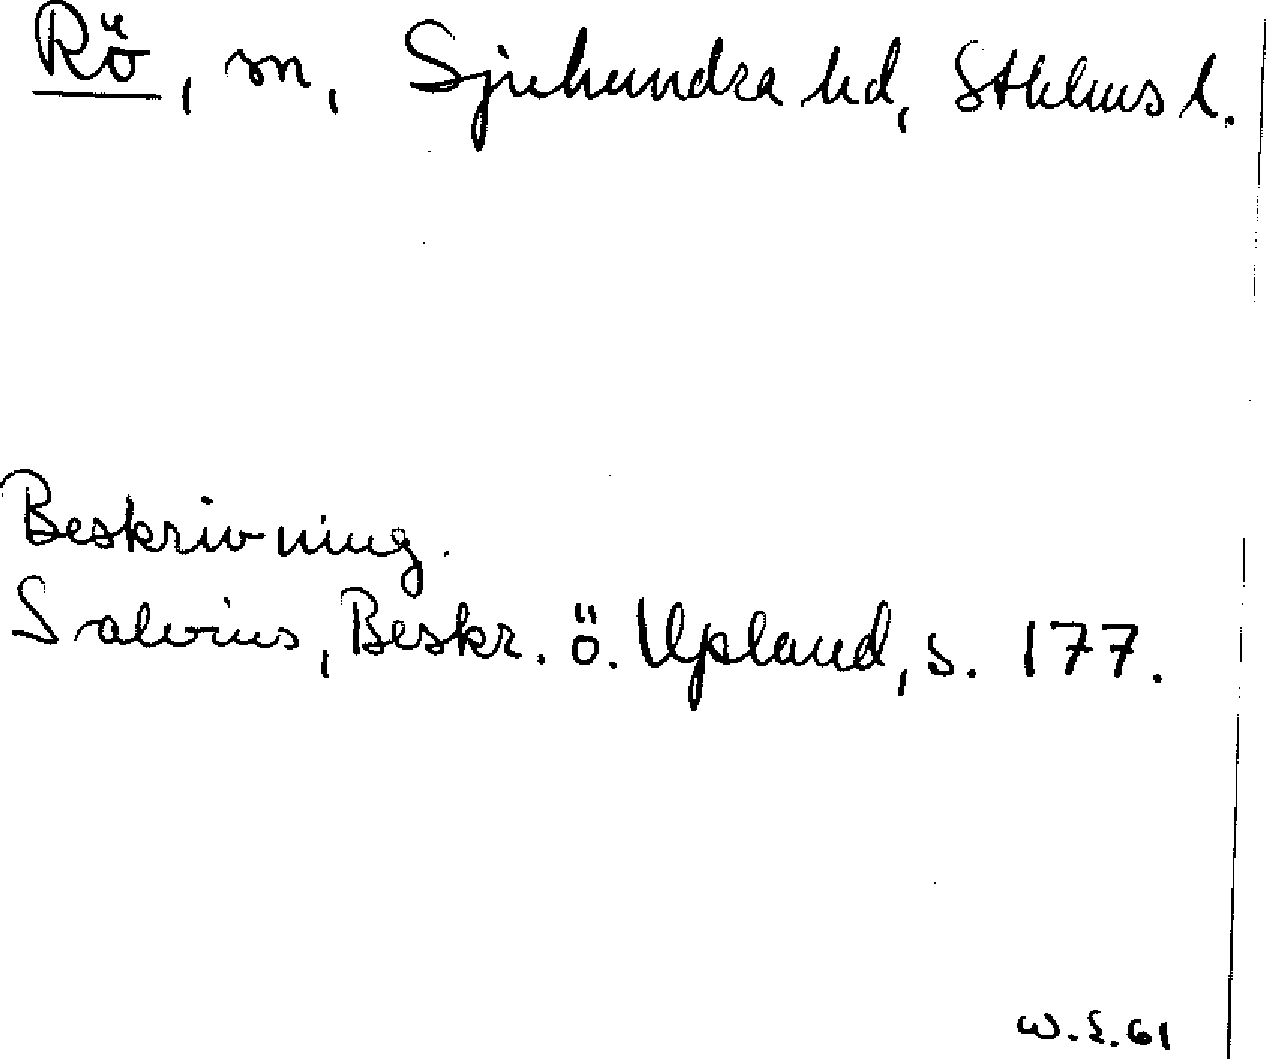 Rö, sn, Sjuhundra hd, Sthlms l.
Beskrivning.
Salvius, Beskr. ö. Upland, s. 177.
W.S.61